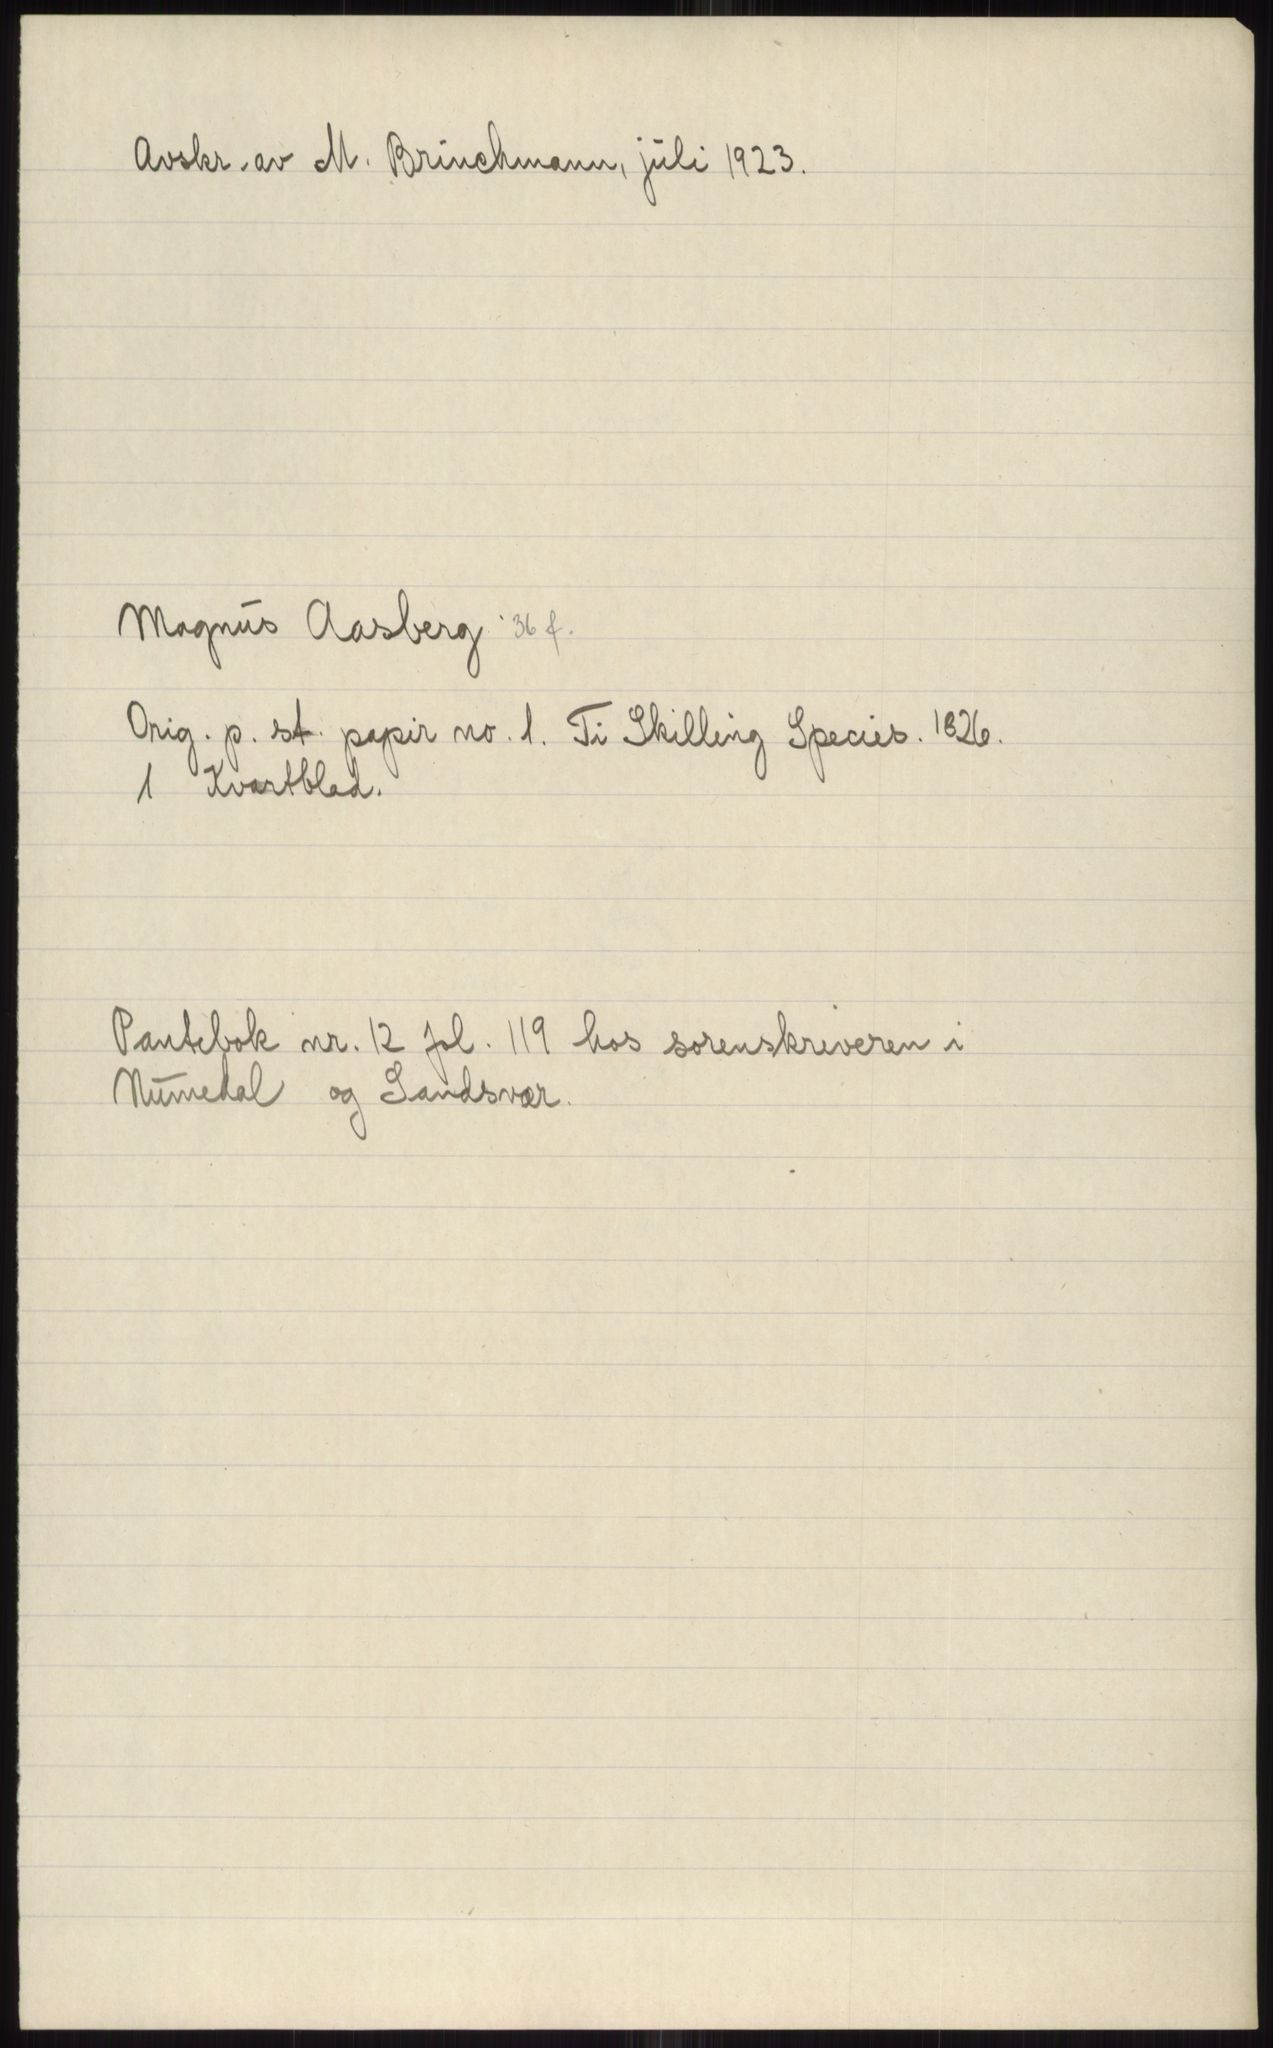 Avskr. av M. Brinchmann, juli 1923.
Magnus Aasberg 36 f.
Orig. p. st. papir no. 1. Ti Skilling Species. 1826.
1 Kvartblad.
Pantebok nr. 12 fol. 119 hos sorenskriveren i
Numedal og Sandsvær.